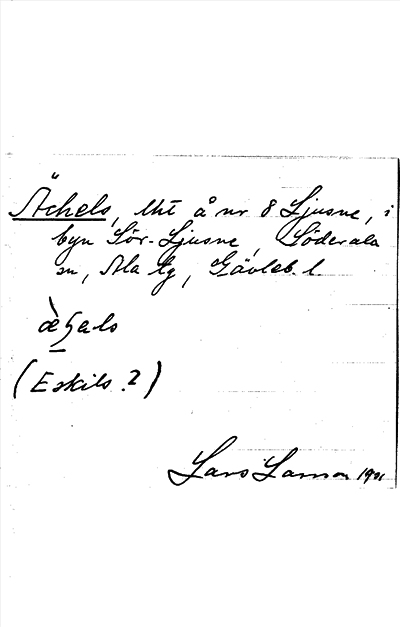 Ächels, lht å nr 8 Ljusne, i
byn Sör-Ljusne, Söderala
sn, Ala tg, Gävleb. l
(Eskils ?)
Lars Larsson 1901